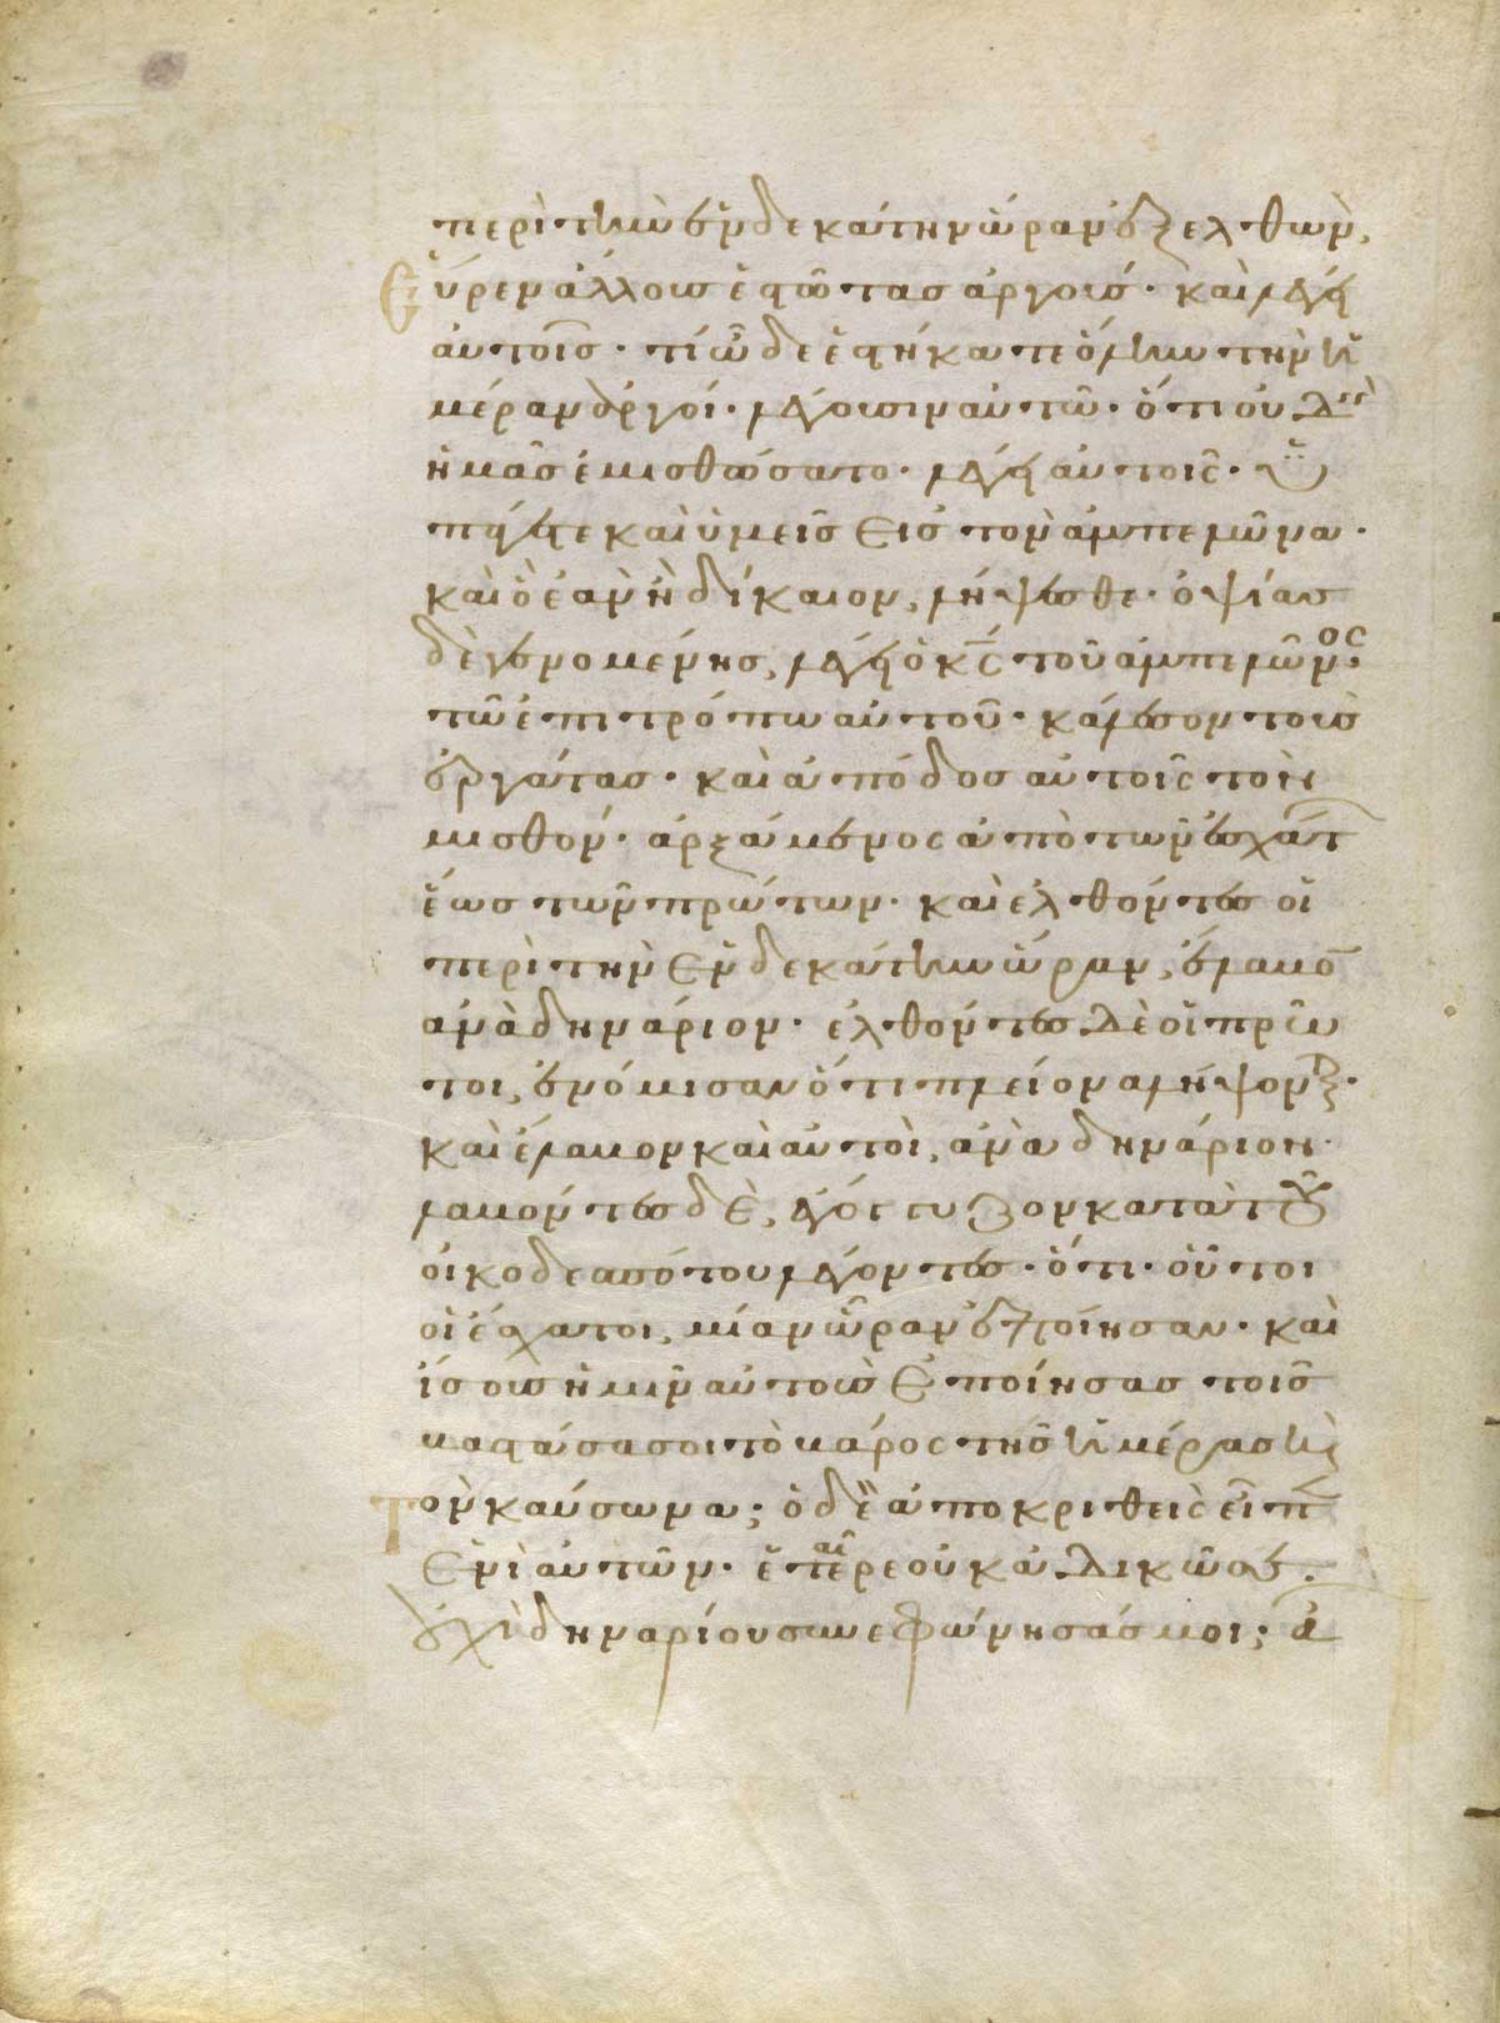 περὶ τὴν ἑνδεκάτην ὥραν ἐξελθὼν,
εὗρεν ἄλλους ἑστῶτας ἀργούς· καὶ λέγει
αὐτοῖς· τί ὧδε ἑστήκατε ὅλην τὴν ἡ
μέραν ἀργοί· λέγουσιν αὐτῶ· ὅτι οὐδεὶς
ἡμᾶς ἐμισθώσατο· λέγει αὐτοῖς· ὑ
πάγετε καὶ ὑμεῖς εἰς τὸν ἀμπελῶνα·
καὶ ὃ ἐὰν ἦ δίκαιον, λήψεσθε· ὀψίας
δὲ γενομένης, λέγει ὁ κς τοῦ ἀμπελῶνος
τῶ ἐπιτρόπω αὐτοῦ· κάλεσον τοὺς
ἐργάτας· καὶ ἀπόδος αὐτοῖς τὸν
μισθόν· ἀρξάμενος ἀπὸ τῶν ἐσχάτ
ἕως τῶν πρώτων· καὶ ἐλθόντες οἱ
περὶ τὴν ἑνδεκάτην ὥραν, ἔλαβο
ἀνὰ δηνάριον· ἐλθόντες δὲ οἱ πρῶ
τοι, ἐνόμισαν ὅτι πλείονα λήψονται·
καὶ ἔλαβον καὶ αὐτοὶ, ἀνὰ δηνάριον·
λαβόντες δὲ, ἐγόγγυζον κατὰ τοῦ
οἰκοδεσπότου λέγοντες· ὅτι· οὗτοι
οἱ ἔσχατοι, μίαν ὥραν ἐποίησαν· καὶ
ἴσους ἡμῖν αὐτοὺς ἐποίησας τοῖς
βαστάσασι τὸ βάρος τῆς ἡμέρας κὶ
τὸν καύσωνα; ὁ δὲ ἀποκριθεὶς εἶπ
ἑνὶ αὐτῶν· ἑταῖρε οὐκ ἀδικῶ σε·
οὐχὶ δηναρίου συνεφώνησάς μοι; ἆ